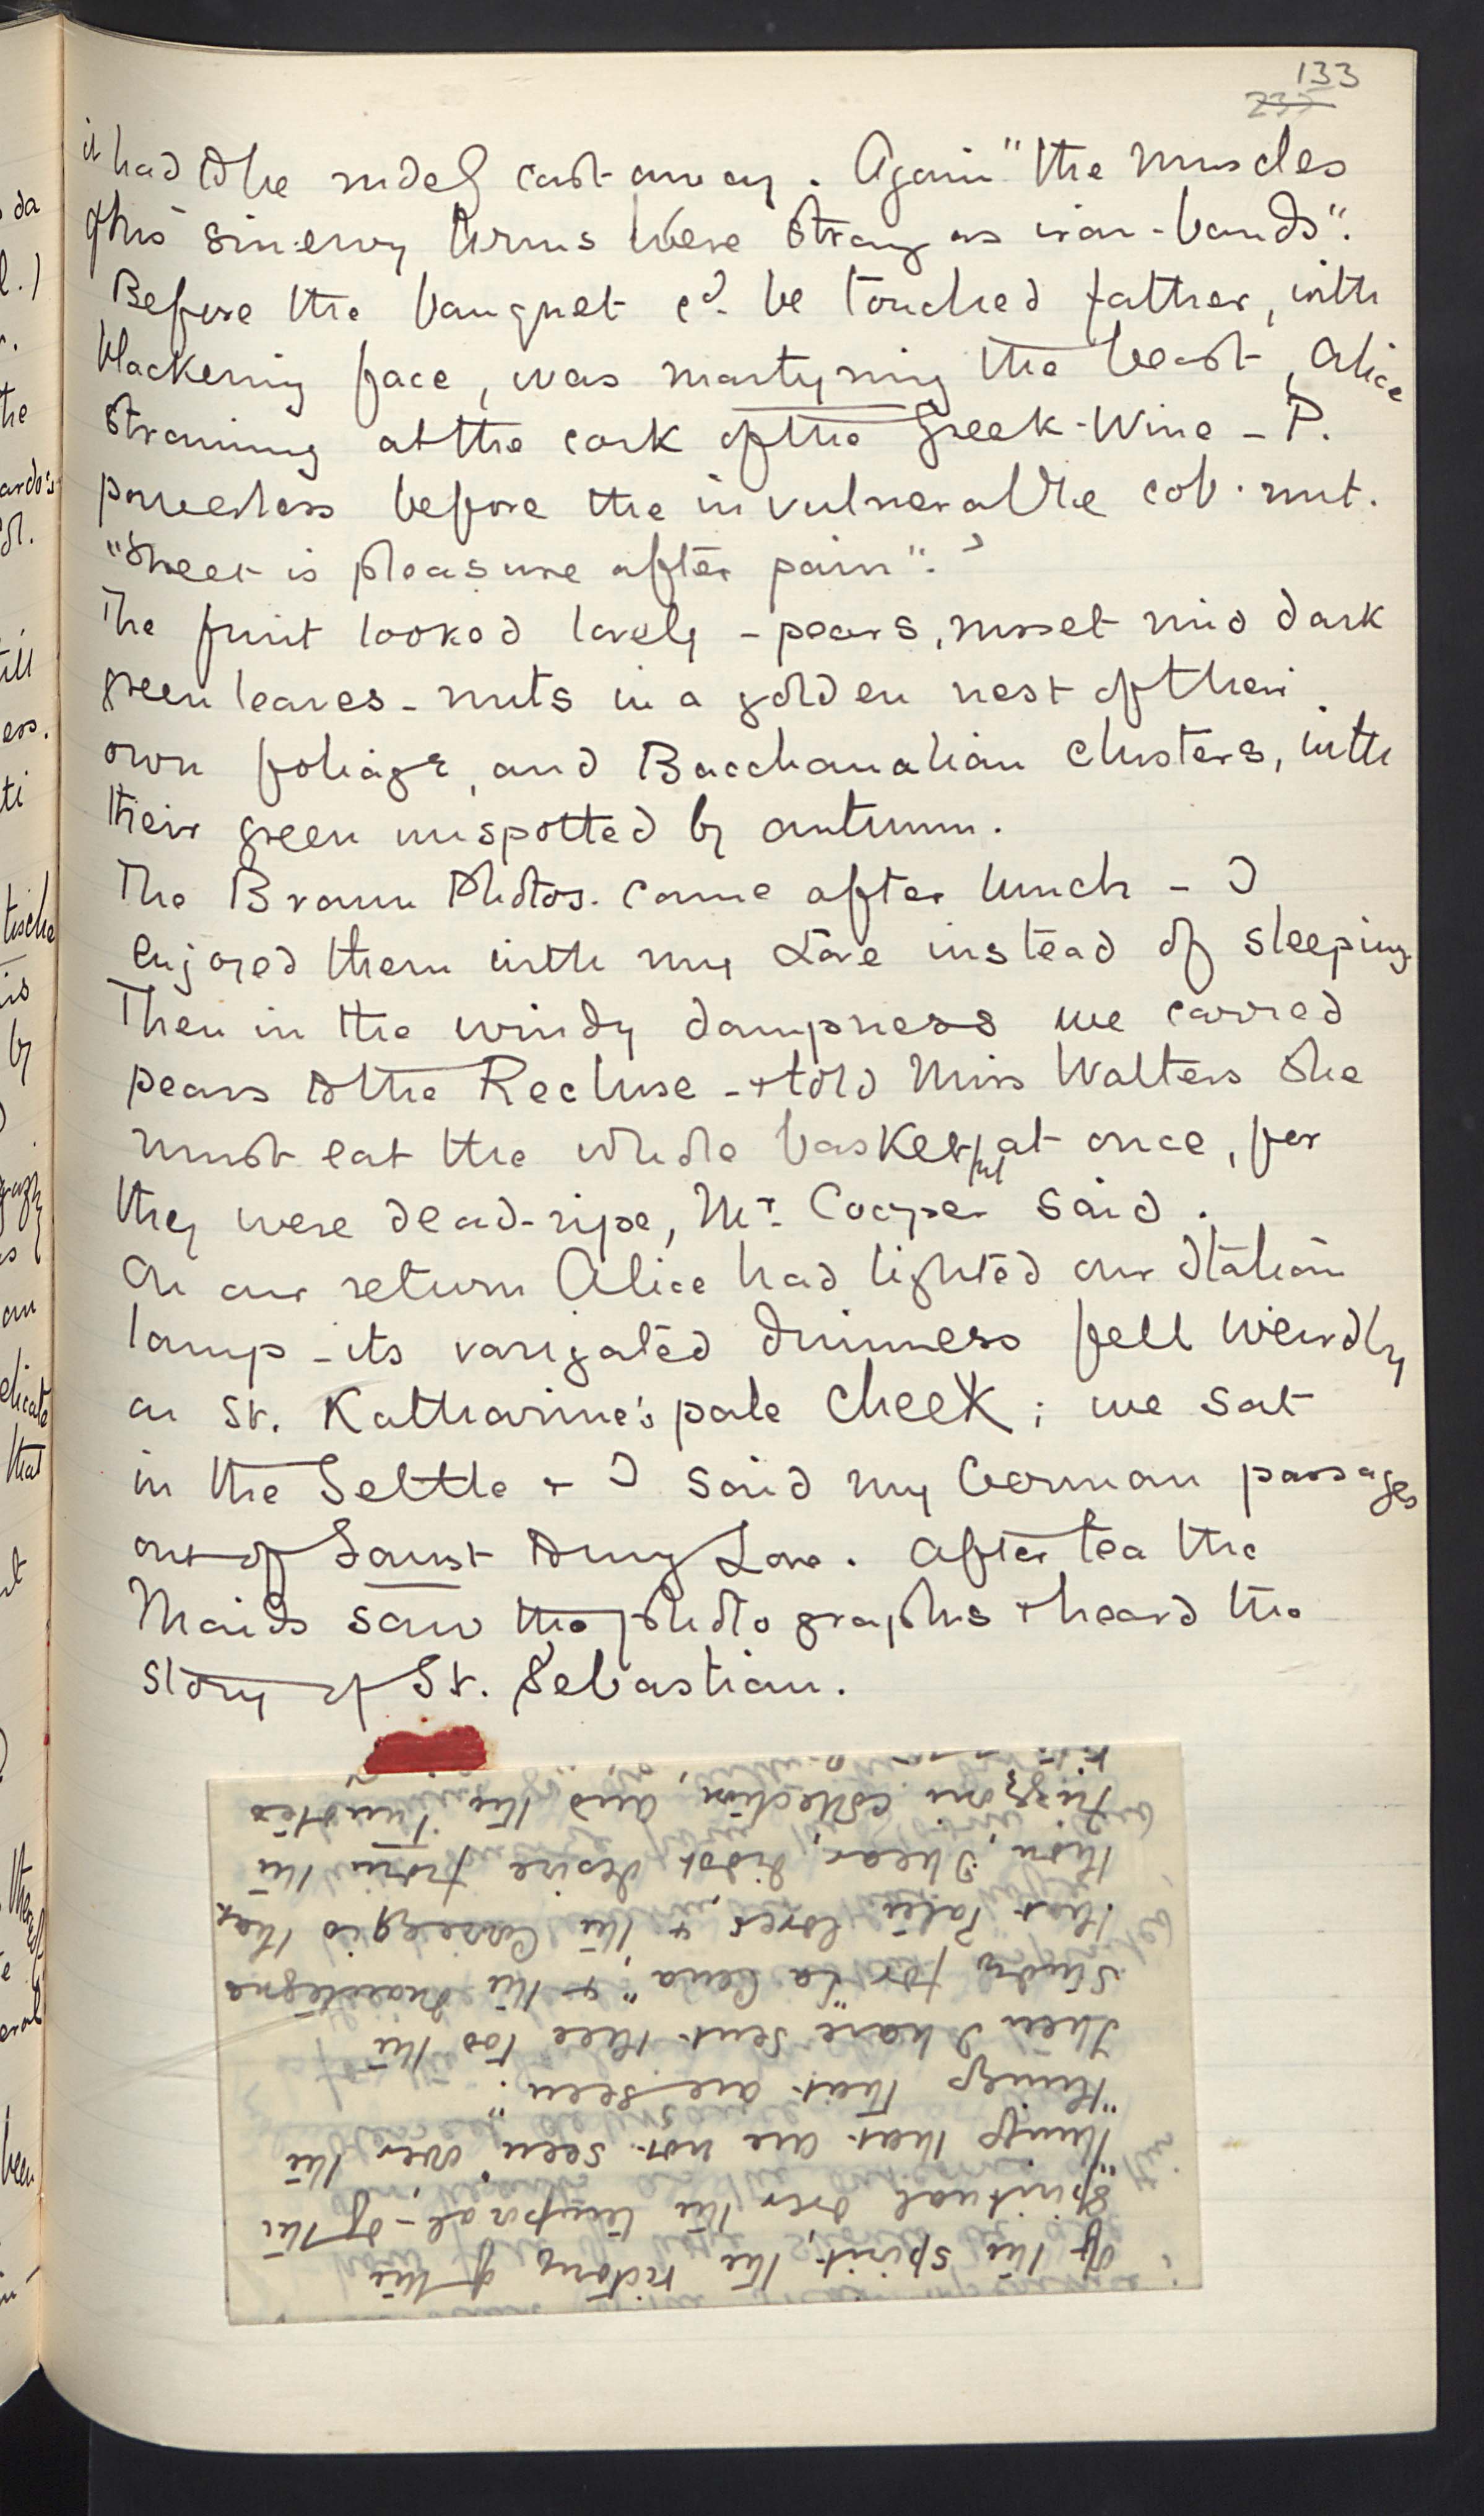 133
235
it had to be rudely cast away. Again "the muscles
of his sinewy arms were strong as iron-bands".
Before the banquet cd. be touched father, with
blackening face, was martyring the beast, Alice
straining at the cork of the Greek-Wine – P.
powerless before the invulnerable cob-nut.
"Sweet is pleasure after pain".
The fruit looked lovely – pears, russet mid dark
green leaves – nuts in a golden nest of their
own foliage, and Bacchanalian clusters, with
their green unspotted by autumn.
The Braun Photos. came after lunch – I
enjoyed them with my Love instead of sleeping.
Then in the windy dampness we carried
pears to the Recluse – & told Miss Walters she
must eat the whole basketful at once, for
they were dead-ripe, Mr. Cooper said.
On our return Alice had lighted our Italian
lamp – its varigated dimness fell weirdly
on St. Katharine's pale cheek; we sat
in the Settle & I said my German passages
out of Faust to my Love. After tea the
Maids saw the photographs & heard the
story of St. Sebastian.
of the spirit, the victory of the
spiritual over the temporal – of the
"things that are not seen" over the
"things that are seen."
Then I have sent thee too the
Study for "La Cena" & the Mantegna
that Pater loves, & the Correggio that
thou, I hear, didst desire from the
collection, and the